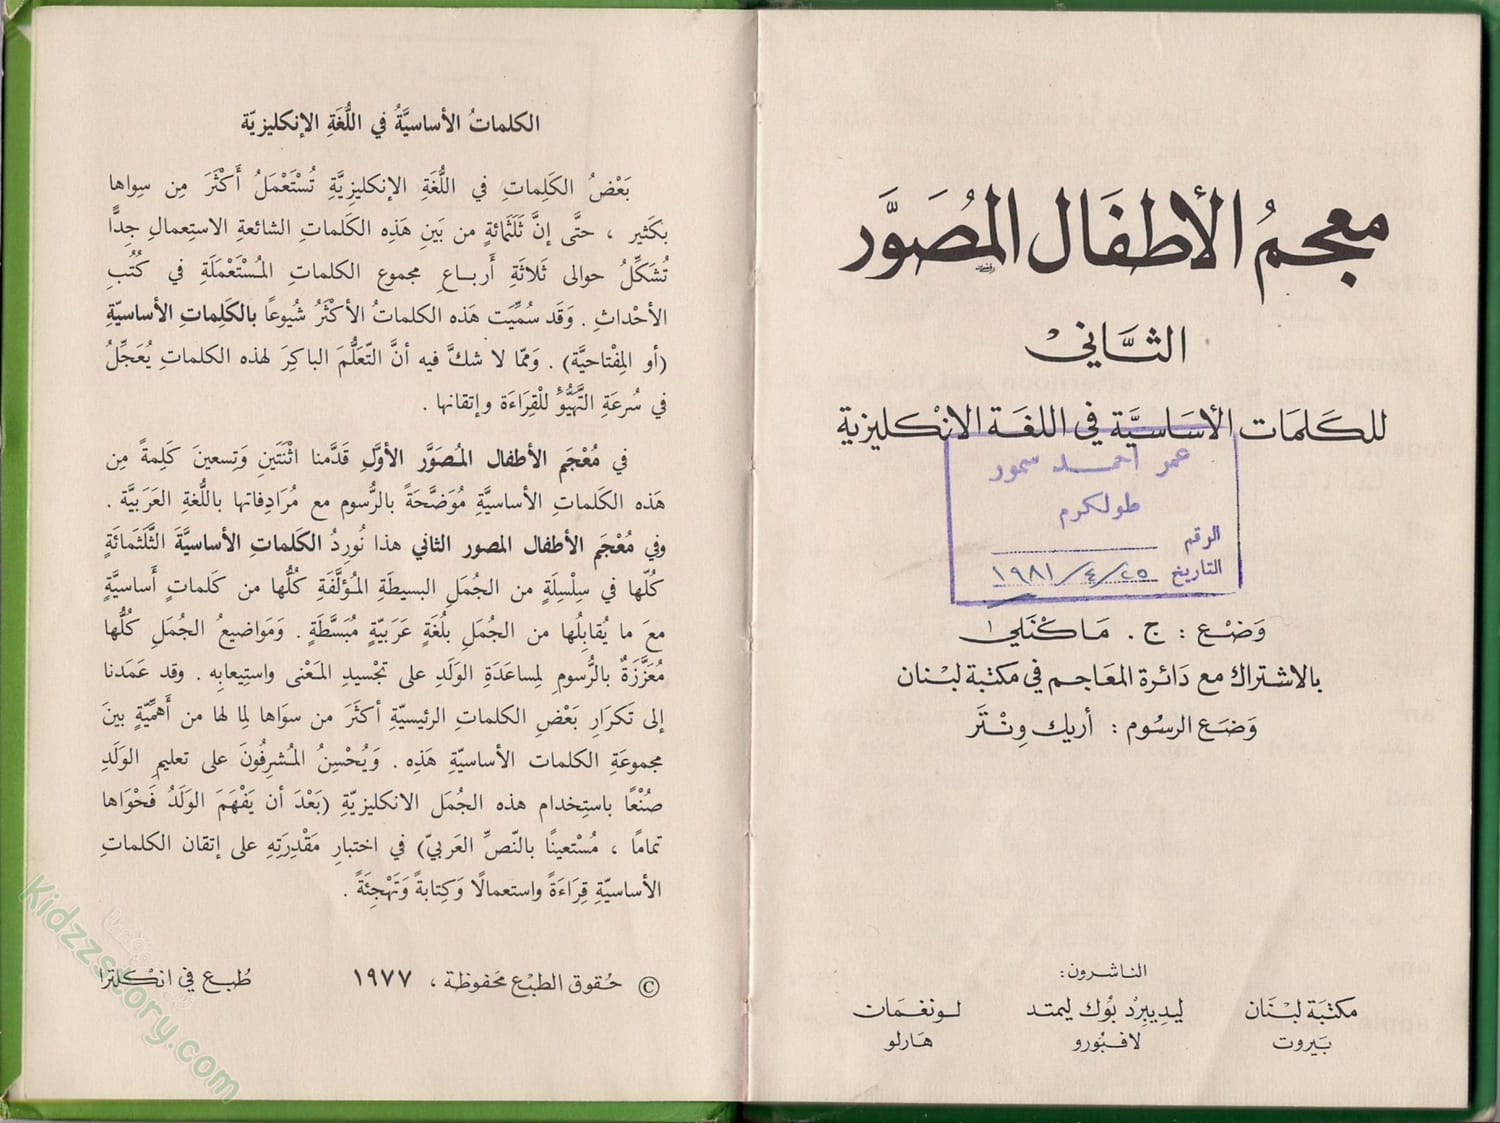 معجمُ الأطفَال المُصَوَّر
الثَّاني
للكَلمَات الأسَاسيَّة في اللغَة الانْكليزية
عمر احمد سمور
طولكرم
الرقم
التاريخ ٢٥/٤/١٩٨١
وَضْع : ج. مَاكْنَلي
بالاشتراك مع دَائرة المعَاجم في مكتبة لبْنان
وَضَع الرسُوم : أريك وِنْتَر
الناشرون:
مكتبَة لبْنَان
بَيروت
ليديبِرْد بُوك ليمتد
لافبُورو
لونغمَان
هَارلو
الكلماتُ الأساسيَّةُ في اللُّغَةِ الإنكليزيّة
بَعْضُ الكَلِماتِ في اللُّغَةِ الإنكليزِيَّةِ تُسْتَعْمَلُ أَكْثَرَ مِن سِواها
بكَثير ، حتَّى إنَّ ثَلَثمائةٍ من بَينِ هَذِه الكَلماتِ الشائعةِ الاستِعمالِ جِدًّا
تُشَكِّلُ حوالى ثَلاثَةِ أرباعِ مجموع الكلماتِ المُسْتَعْمَلَةِ في كُتُبِ
الأحْداثِ . وَقَد سُمِّيَت هَذه الكلماتُ الأكْثَرُ شُيوعًا بالكَلِماتِ الأساسيّةِ
(أو المِفْتاحيَّة) . وَممّا لا شكَّ فيه أنَّ التّعَلُّمَ الباكِرَ لهذه الكلماتِ يُعَجِّلُ
في سُرعَةِ التَّهَيُّؤِ للْقِراءَة وإتقانها .
في مُعْجَم الأطفال المُصَوَّر الأوَّلِ قَدَّمنا اثْنَتَينِ وَتِسعينَ كَلِمةً مِن
هَذه الكَلِماتِ الأساسيَّةِ مُوَضَّحَةً بالرُّسوم مع مُرَادِفاتها باللُّغةِ العَرَبيَّة .
وفي مُعْجَم الأطفال المصور الثاني هذا نُورِدُ الكلماتِ الأساسيَّةَ الثَّلَثمائةَ
كُلَّها في سِلْسِلَةٍ من الجُمَلِ البسيطَةِ المُؤلَّفَةِ كُلُّها من كَلماتٍ أساسيَّةٍ
معَ ما يُقابِلُها من الجُمَلِ بلُغَةٍ عَرَبيّةٍ مُبَسَّطَةٍ . وَمَواضيعُ الجُمَلِ كُلُّها
مُعَزَّزَةٌ بالرُّسومِ لِمساعَدَةِ الوَلَدِ على تجْسيدِ المَعْنى واستيعابِه . وقد عَمَدنا
إلى تَكرَارِ بَعْضِ الكلماتِ الرئيسيّةِ أكثَرَ من سوَاها لِما لها من أهَمِّيَّةٍ بينَ
مجموعَةِ الكلمات الأساسيّةِ هَذِه . وَيُحْسِنُ المُشرِفُونَ على تعليمِ الوَلَدِ
صُنْعًا باستِخدام هذه الجُمَل الانكليزيّةِ (بَعْدَ أن يَفْهَمَ الوَلَدُ فَحْوَاها
تمامًا ، مُسْتعينًا بالنّصِّ العَربيّ) في اختبارِ مَقْدِرَتِهِ على إتقان الكلماتِ
الأساسيّةِ قِرَاءَةً واستعمالًا وَكِتابةً وَتَهْجِئَةً .
© حُقوق الطبْع محَفوظة ، ١٩٧٧
طُبع في انْكلترا
Kidzzstory.com